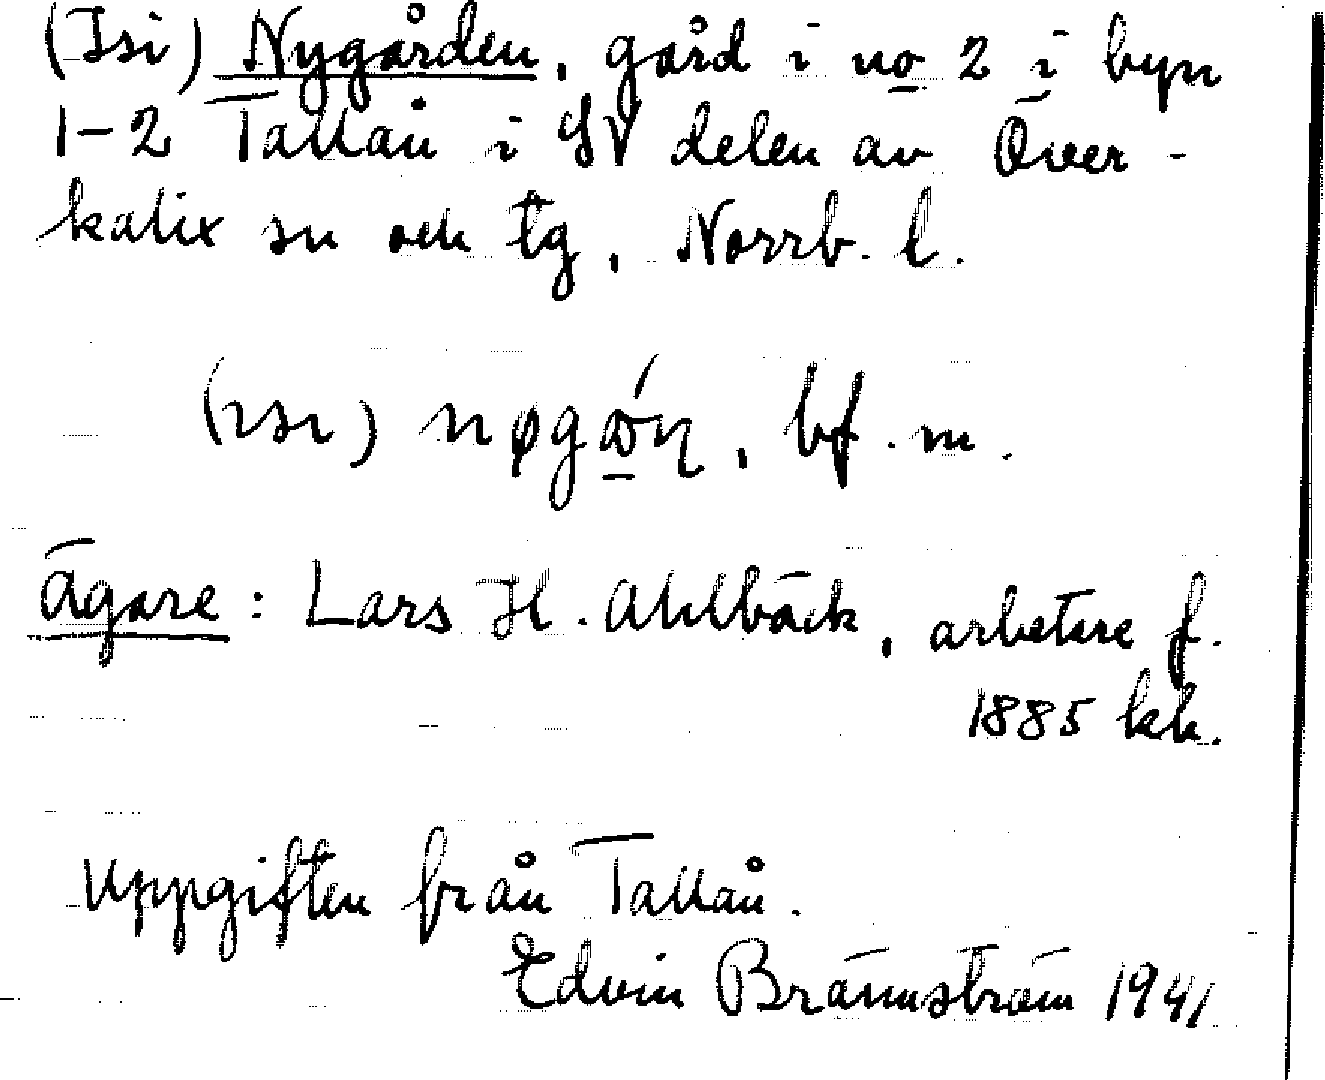 (Isi) Nygården, gård i no 2 i byn
1-2 Tallån i SV delen av Över-
kalix sn och tg, Norrb. l.
(ısı) bf. m.
Ägare: Lars H. Ahlbäck, arbetare f.
1885 kh.
Uppgiften från Tallån.
Edvin Brännström 1941